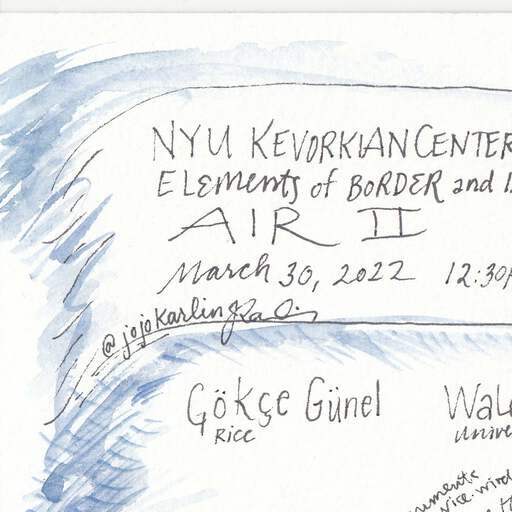 NYU KEVORKIAN CENTER
ELEments of BoRDER and
AIR II
March 30, 2022 12:30
@jojoKarlin
Gökçe Günel
Rice